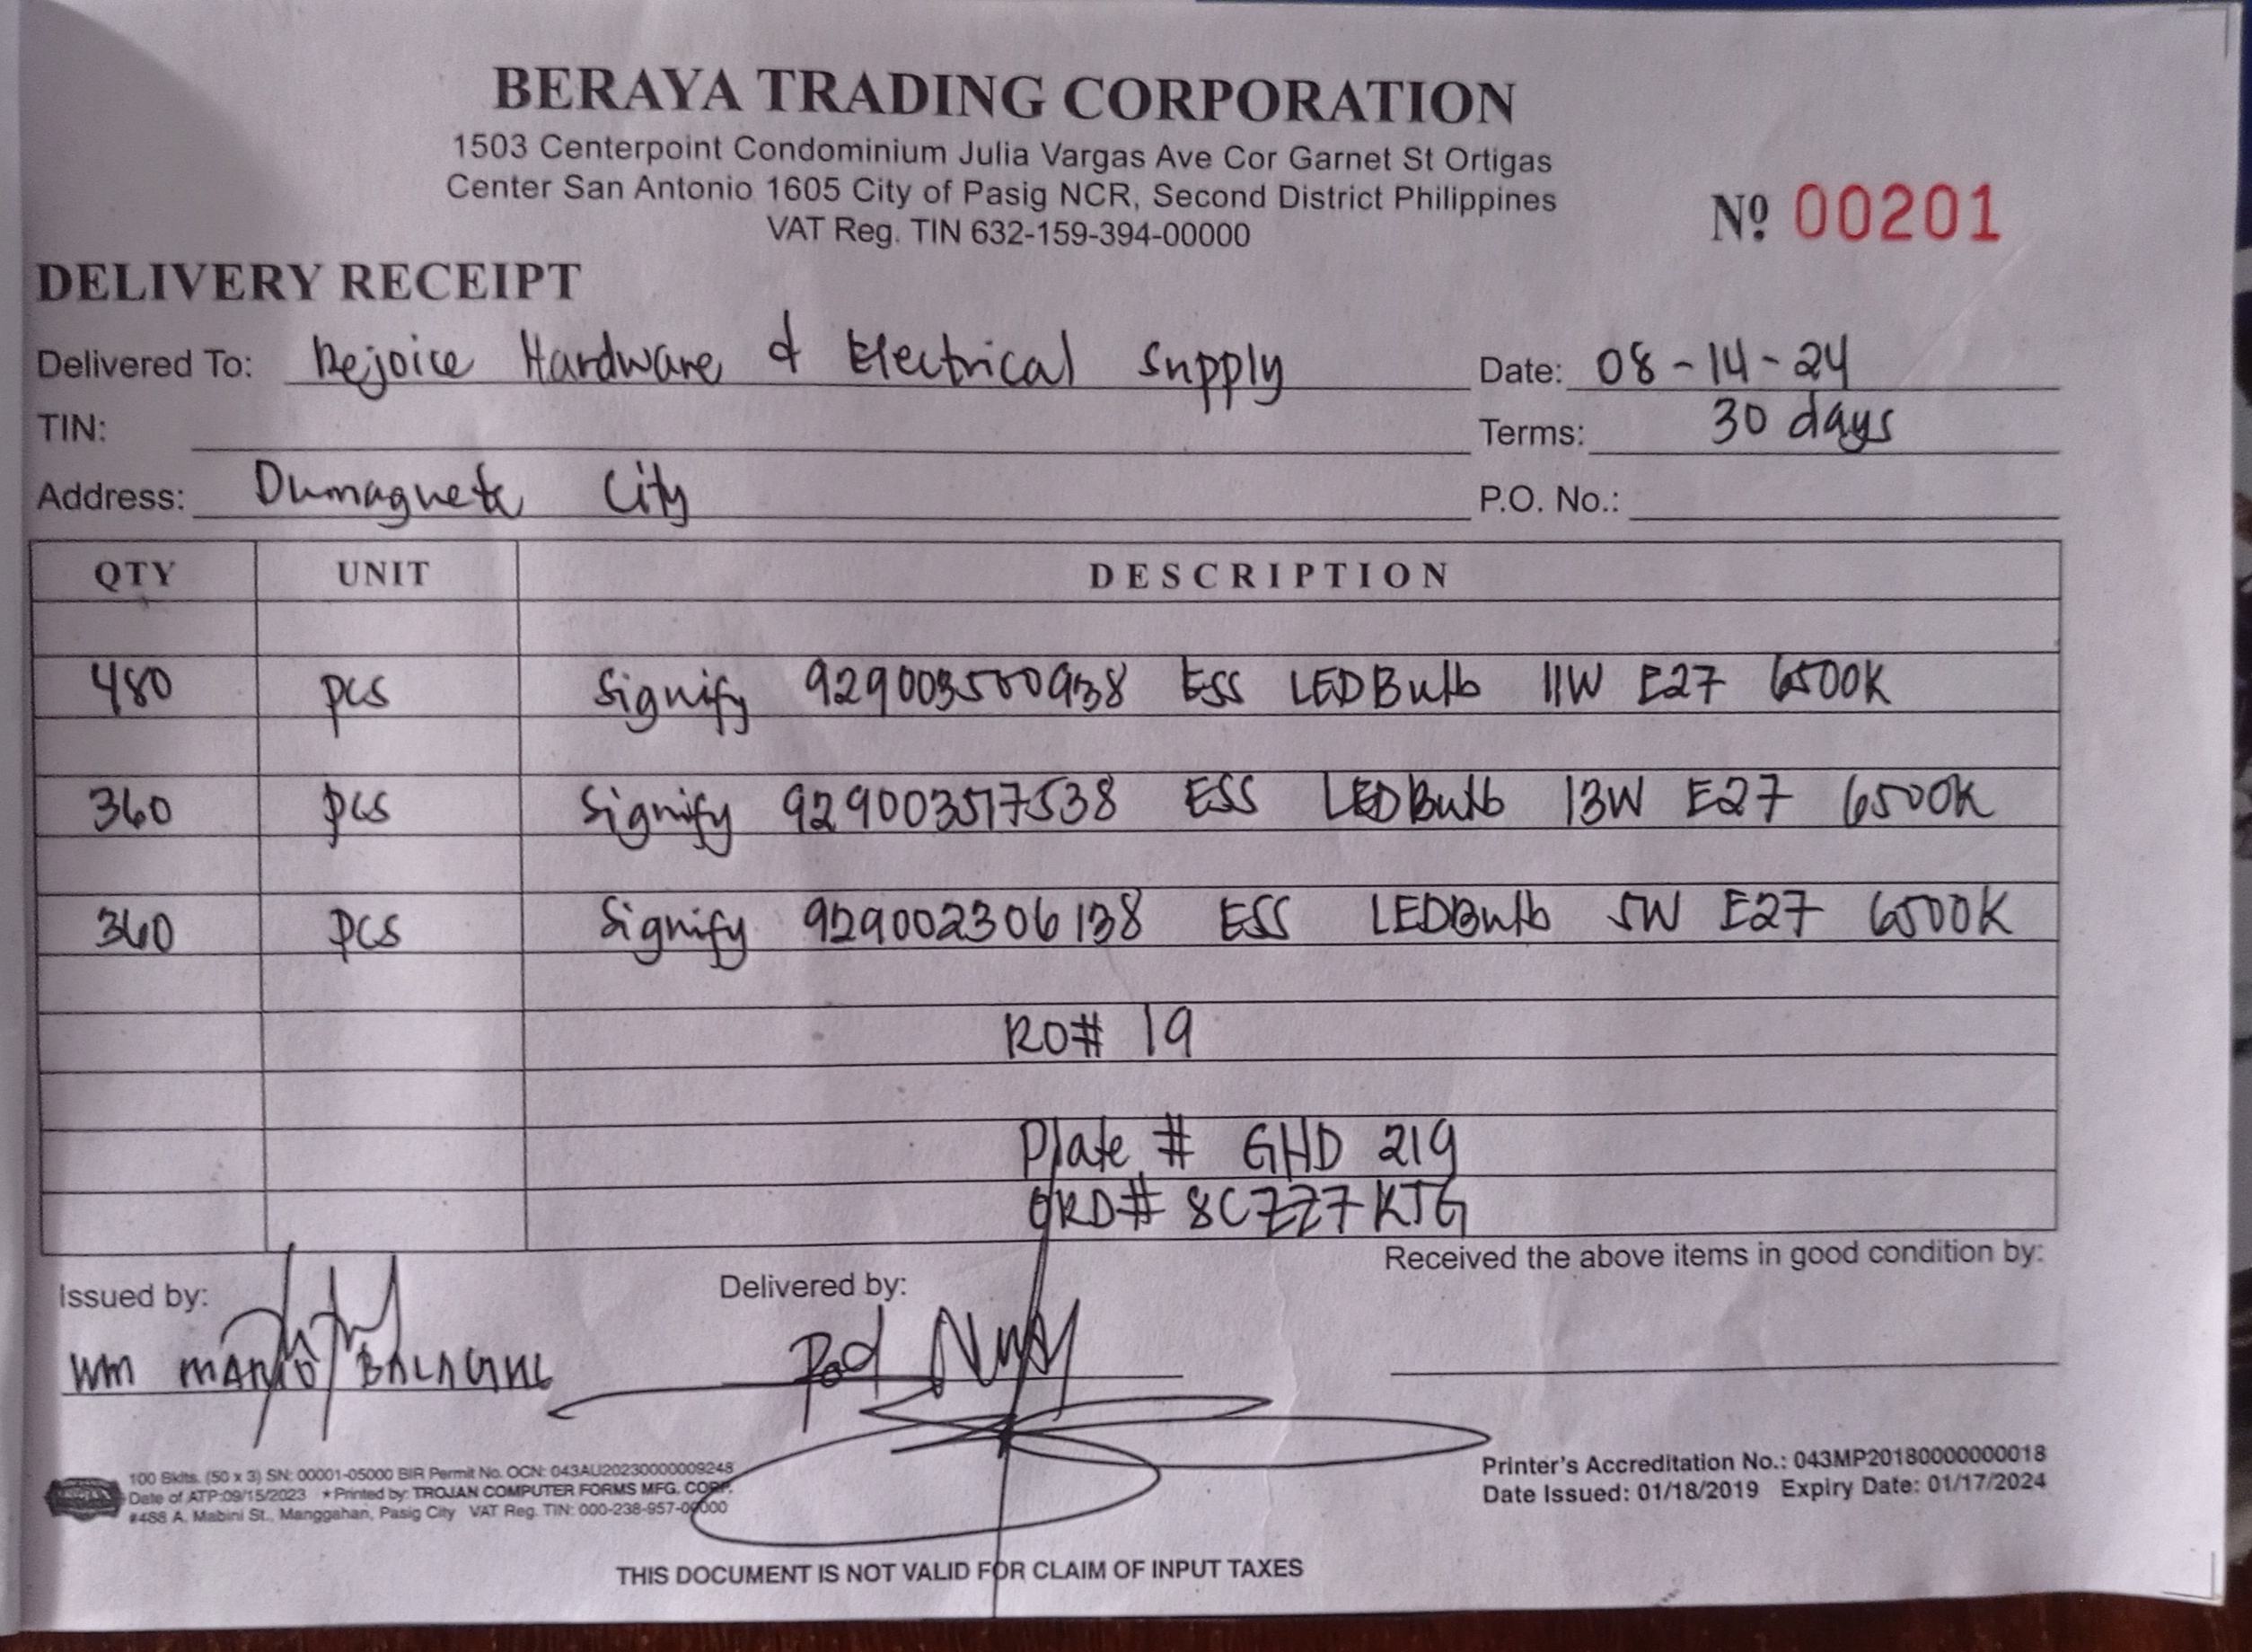 BERAYA TRADING CORPORATION
1503 Centerpoint Condominium Julia Vargas Ave Cor Garnet St Ortigas
Center San Antonio 1605 City of Pasig NCR, Second District Philippines
VAT Reg. TIN 632-159-394-00000
Nº 00201
DELIVERY RECEIPT
Delivered To: Rejoice Hardware & Electrical Supply Date: 08-14-24
TIN: Terms: 30 days
Address: Dumaguete City P.O. No.:
QTY UNIT DESCRIPTION
480 pcs Signify 929003500938 ESS LEDBulb 11W E27 6500K
360 pcs Signify 929003517538 ESS LEDBulb 13W E27 6500K
360 pcs Signify 929002306138 ESS LEDBulb 5W E27 6500K
RO# 19
Plate # GHD 219
ORD# 8CZZ7KJG
Issued by: Delivered by: Received the above items in good condition by:
WM
100 Bklts. (50 x 3) SN: 00001-05000 BIR Permit No. OCN: 043AU20230000009248
Date of ATP:09/15/2023 ★Printed by: TROJAN COMPUTER FORMS MFG. CORP.
#488 A. Mabini St., Manggahan, Pasig City VAT Reg. TIN: 000-238-957-00000
Printer's Accreditation No.: 043MP20180000000018
Date Issued: 01/18/2019 Expiry Date: 01/17/2024
THIS DOCUMENT IS NOT VALID FOR CLAIM OF INPUT TAXES